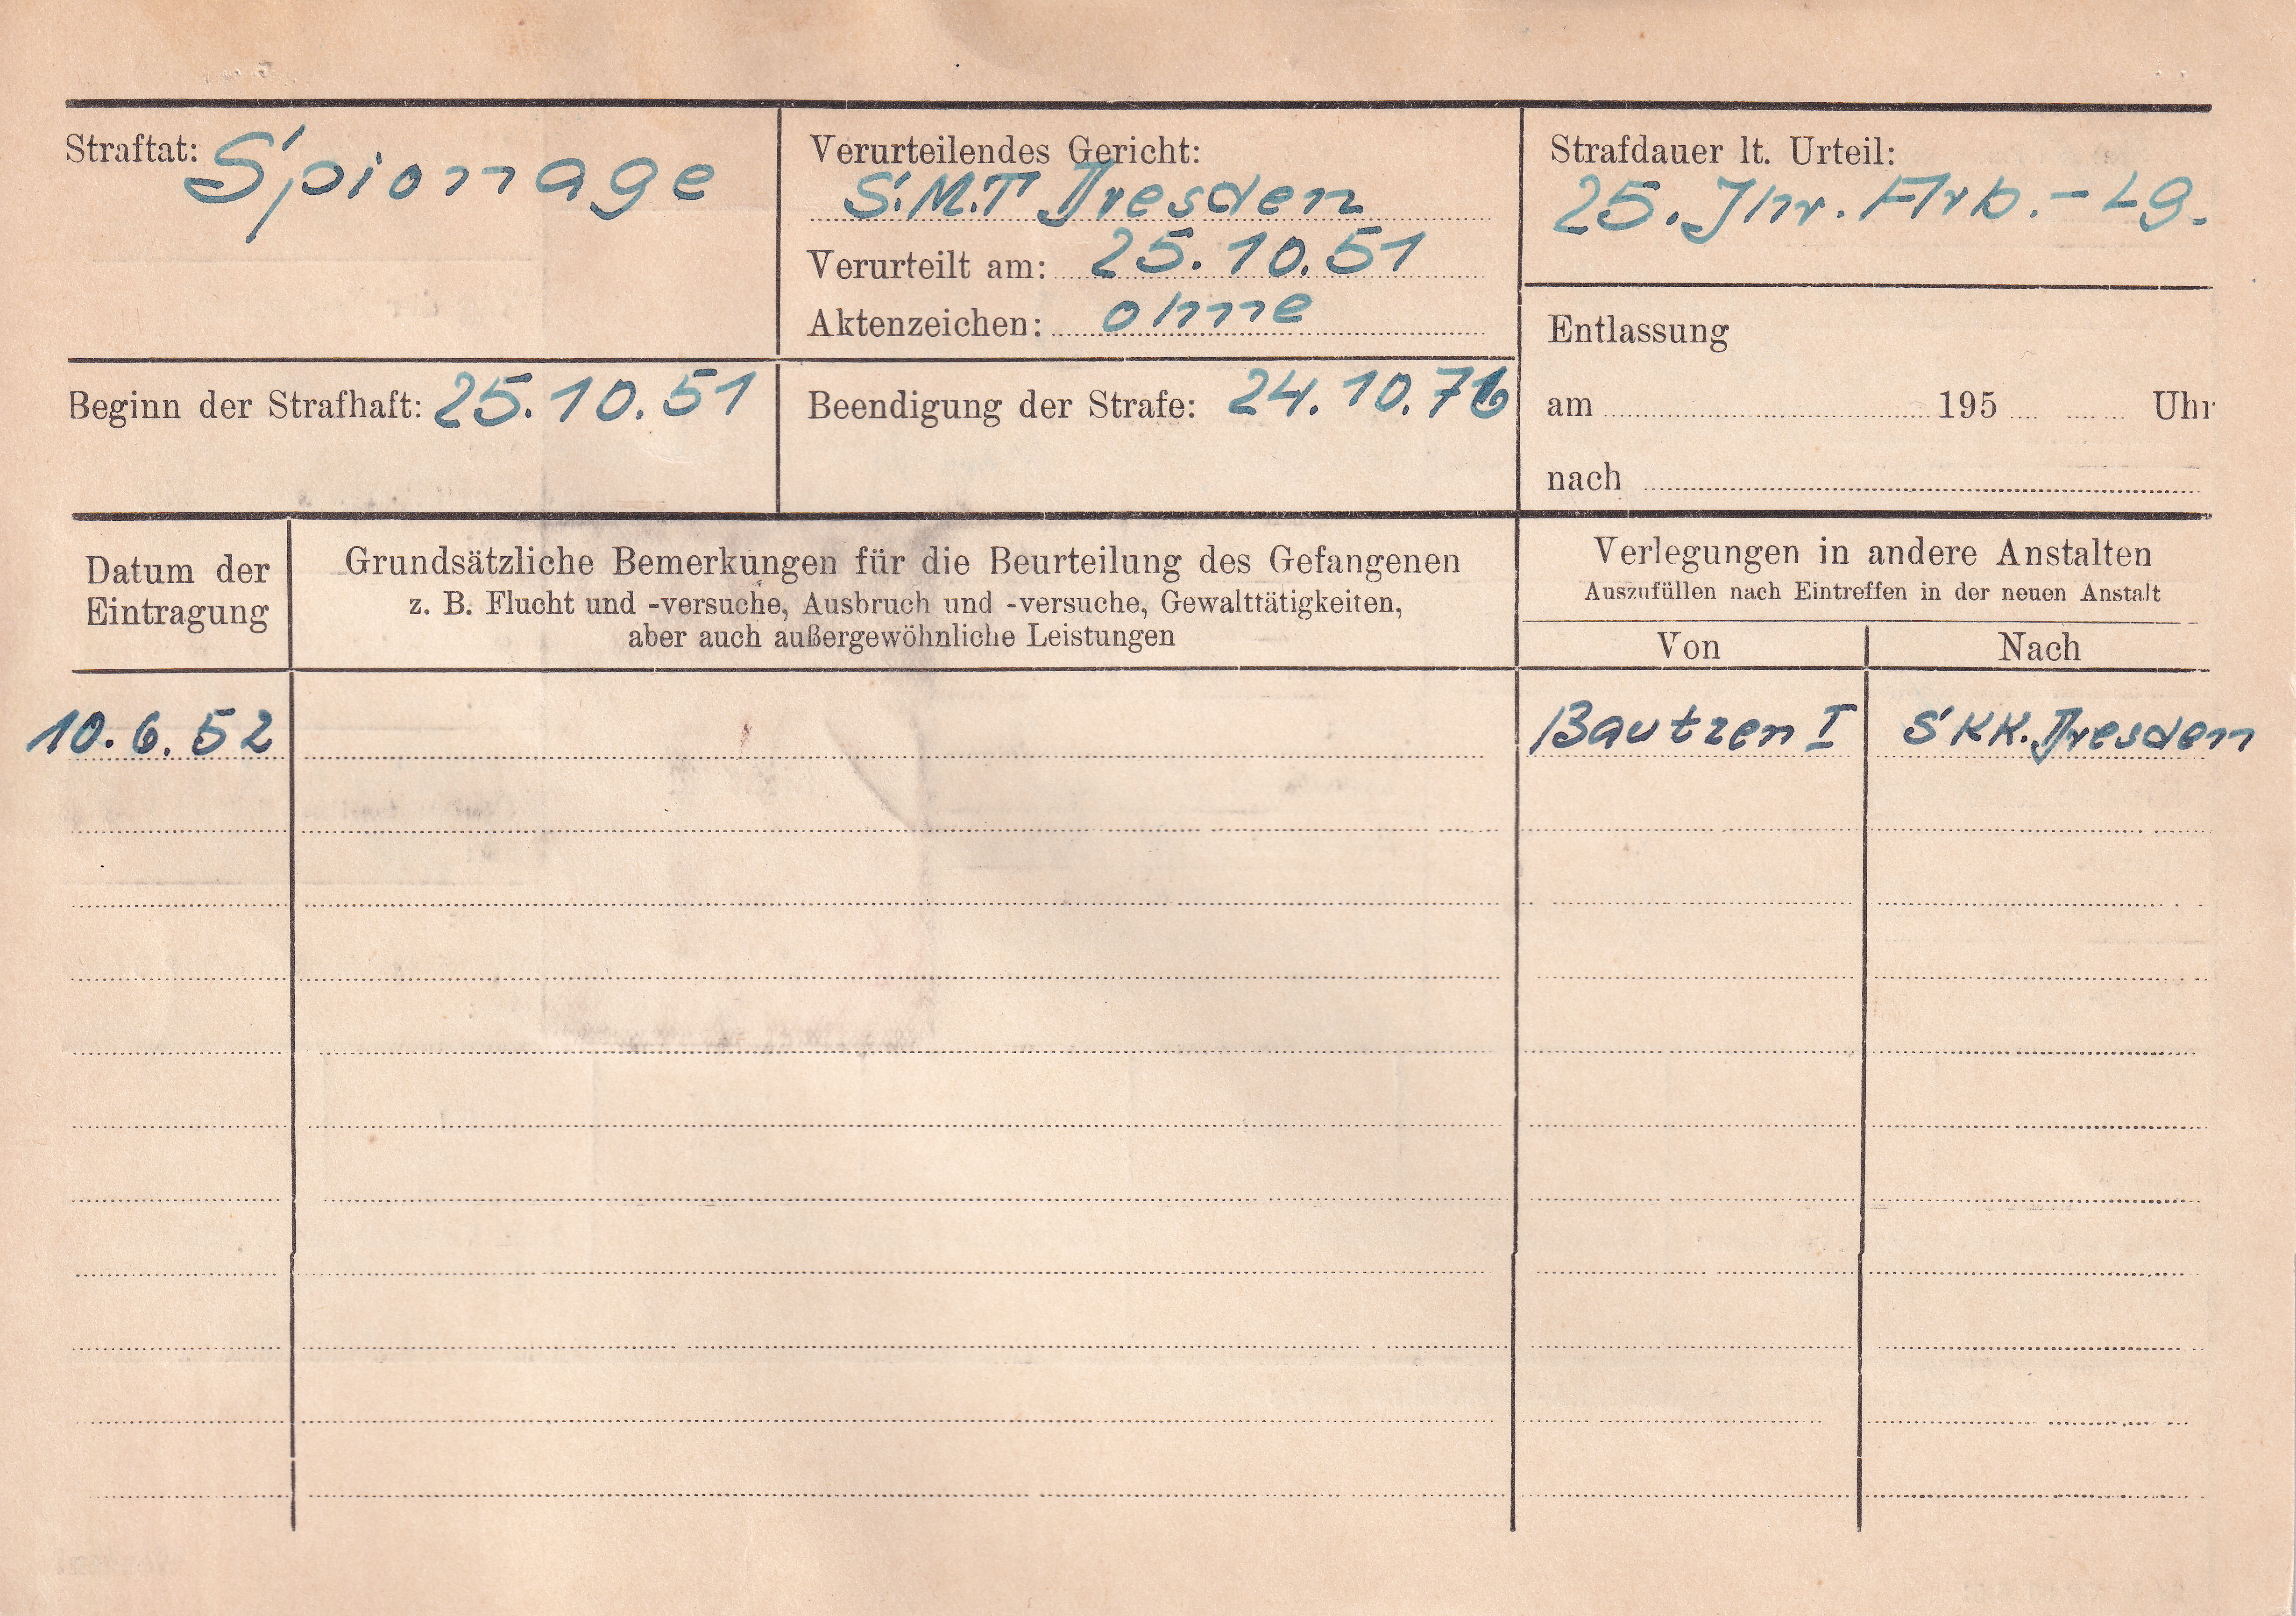 Straftat: Spionage
Verurteilendes Gericht:
S.M.T Dresden
Verurteilt am: 25.10.51
Aktenzeichen: ohne
Strafdauer lt. Urteil:
25. Jhr. Arb.-Lg.
Beginn der Strafhaft: 25.10.51
Beendigung der Strafe: 24.10.76
Entlassung
am 195 Uhr
nach
Datum der
Eintragung
Grundsätzliche Bemerkungen für die Beurteilung des Gefangenen
z. B. Flucht und -versuche, Ausbruch und -versuche, Gewalttätigkeiten,
aber auch außergewöhnliche Leistungen
Verlegungen in andere Anstalten
Auszufüllen nach Eintreffen in der neuen Anstalt
Von Nach
10.6.52 Bautzen I SKK. Dresden